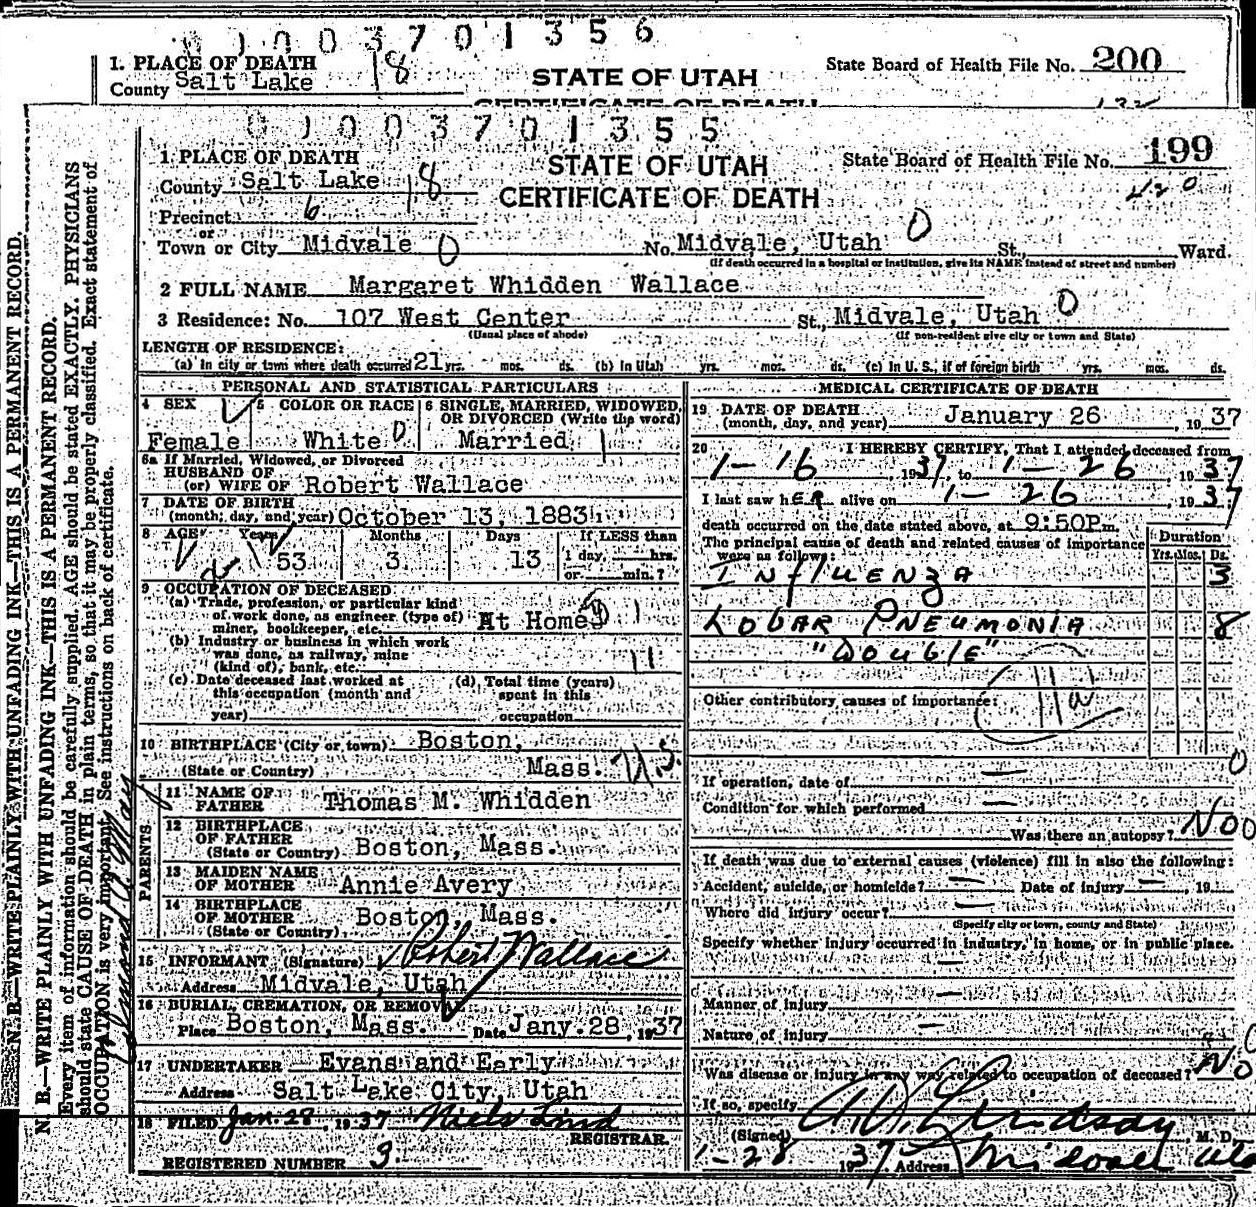 0100370 1356
1. PLACE OF DEATH
County Salt Lake 18
STATE OF UTAH
State Board of Health File No. 200
CERTIFICATE OF DEATH
0100370 1355
1 PLACE OF DEATH
County Salt Lake 18
STATE OF UTAH
CERTIFICATE OF DEATH
State Board of Health File No. 199
Precinct 6
or
Town or City Midvale 0 No. Midvale, Utah 0 St., Ward.
(If death occurred in a hospital or institution, give its NAME instead of street and number)
2 FULL NAME Margaret Whidden Wallace
3 Residence: No. 107 West Center St., Midvale, Utah 0
(Usual place of abode) (If non-resident give city or town and State)
LENGTH OF RESIDENCE:
(a) In city or town where death occurred 21 yrs. mos. ds. (b) In Utah yrs. mos. ds. (c) In U. S., if of foreign birth yrs. mos. ds.
PERSONAL AND STATISTICAL PARTICULARS
4 SEX 5 COLOR OR RACE 6 SINGLE, MARRIED, WIDOWED, OR DIVORCED (Write the word)
Female White 0 Married 1
6a If Married, Widowed, or Divorced
HUSBAND OF
(or) WIFE OF Robert Wallace
7 DATE OF BIRTH
(month, day, and year) October 13, 1883
8 AGE Years Months Days If LESS than
53 3 13 1 day, hrs.
or min.?
9 OCCUPATION OF DECEASED
(a) Trade, profession, or particular kind
of work done, as engineer (type of)
miner, bookkeeper, etc. At Home
(b) Industry or business in which work
was done, as railway, mine
(kind of), bank, etc. 11
(c) Date deceased last worked at
this occupation (month and
year)
(d) Total time (years)
spent in this
occupation
10 BIRTHPLACE (City or town) Boston,
(State or Country) Mass. U.S.
PARENTS
11 NAME OF
FATHER Thomas M. Whidden
12 BIRTHPLACE
OF FATHER
(State or Country) Boston, Mass.
13 MAIDEN NAME
OF MOTHER Annie Avery
14 BIRTHPLACE
OF MOTHER
(State or Country) Boston, Mass.
15 INFORMANT (Signature) Robert Wallace
Address Midvale, Utah
16 BURIAL, CREMATION, OR REMOVAL
Place Boston, Mass. Date Jany. 28, 1937
17 UNDERTAKER Evans and Early
Address Salt Lake City, Utah
18 FILED Jan. 28, 1937 Niels Lind
REGISTRAR.
REGISTERED NUMBER 3.
MEDICAL CERTIFICATE OF DEATH
19 DATE OF DEATH
(month, day, and year) January 26, 1937
20 I HEREBY CERTIFY, That I attended deceased from
1-16, 1937, to 1-26, 1937
I last saw hER alive on 1-26, 1937
death occurred on the date stated above, at 9:50P m.
The principal cause of death and related causes of importance
were as follows:
Duration
Yrs. Mos. Ds.
INfluENZA
LOBAR PNEUMONIA 8
"DOUBLE"
11a
Other contributory causes of importance:
0
If operation, date of —
Condition for which performed —
Was there an autopsy? No 0
If death was due to external causes (violence) fill in also the following:
Accident, suicide, or homicide? — Date of injury —, 19
Where did injury occur? —
(Specify city or town, county and State)
Specify whether injury occurred in industry, in home, or in public place.
—
Manner of injury —
Nature of injury —
Was disease or injury in any way related to occupation of deceased? No
If so, specify
(Signed) Lindsay, M. D.
1-28 1937 Address Midvale Utah
N. B.—WRITE PLAINLY WITH UNFADING INK—THIS IS A PERMANENT RECORD.
N. B.—WRITE PLAINLY WITH UNFADING INK—THIS IS A PERMANENT RECORD.
Every item of information should be carefully supplied. AGE should be stated EXACTLY. PHYSICIANS
should state CAUSE OF DEATH in plain terms, so that it may be properly classified. Exact statement of
OCCUPATION is very important. See instructions on back of certificate.